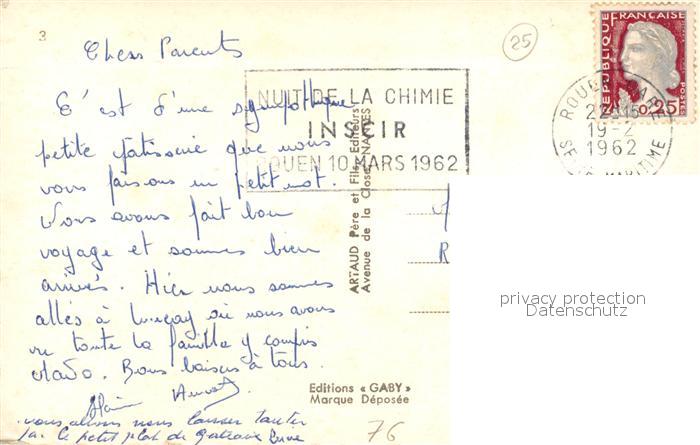 3
25
Chers Parents
C'est d'une sympathique
petite patisserie que nous
vous faisons un petit mot.
Nous avons fait bon
voyage et sommes bien
arrivés. Hier nous sommes
allés à où nous avons
vu toute la famille y compris
Bons baisers à tous.
vous allons nous laisser tenter
par le petit plat de gateaux
NUIT DE LA CHIMIE
INSCIR
ROUEN 10 MARS 1962
REPUBLIQUE FRANÇAISE
POSTES
0,25
ROUEN GARE
22H15
19-2
1962
SEINE MARITIME
ARTAUD Père et Fils, Editeurs
Avenue de la Close, NANTES
R
privacy protection
Datenschutz
Editions « GABY »
Marque Déposée
76